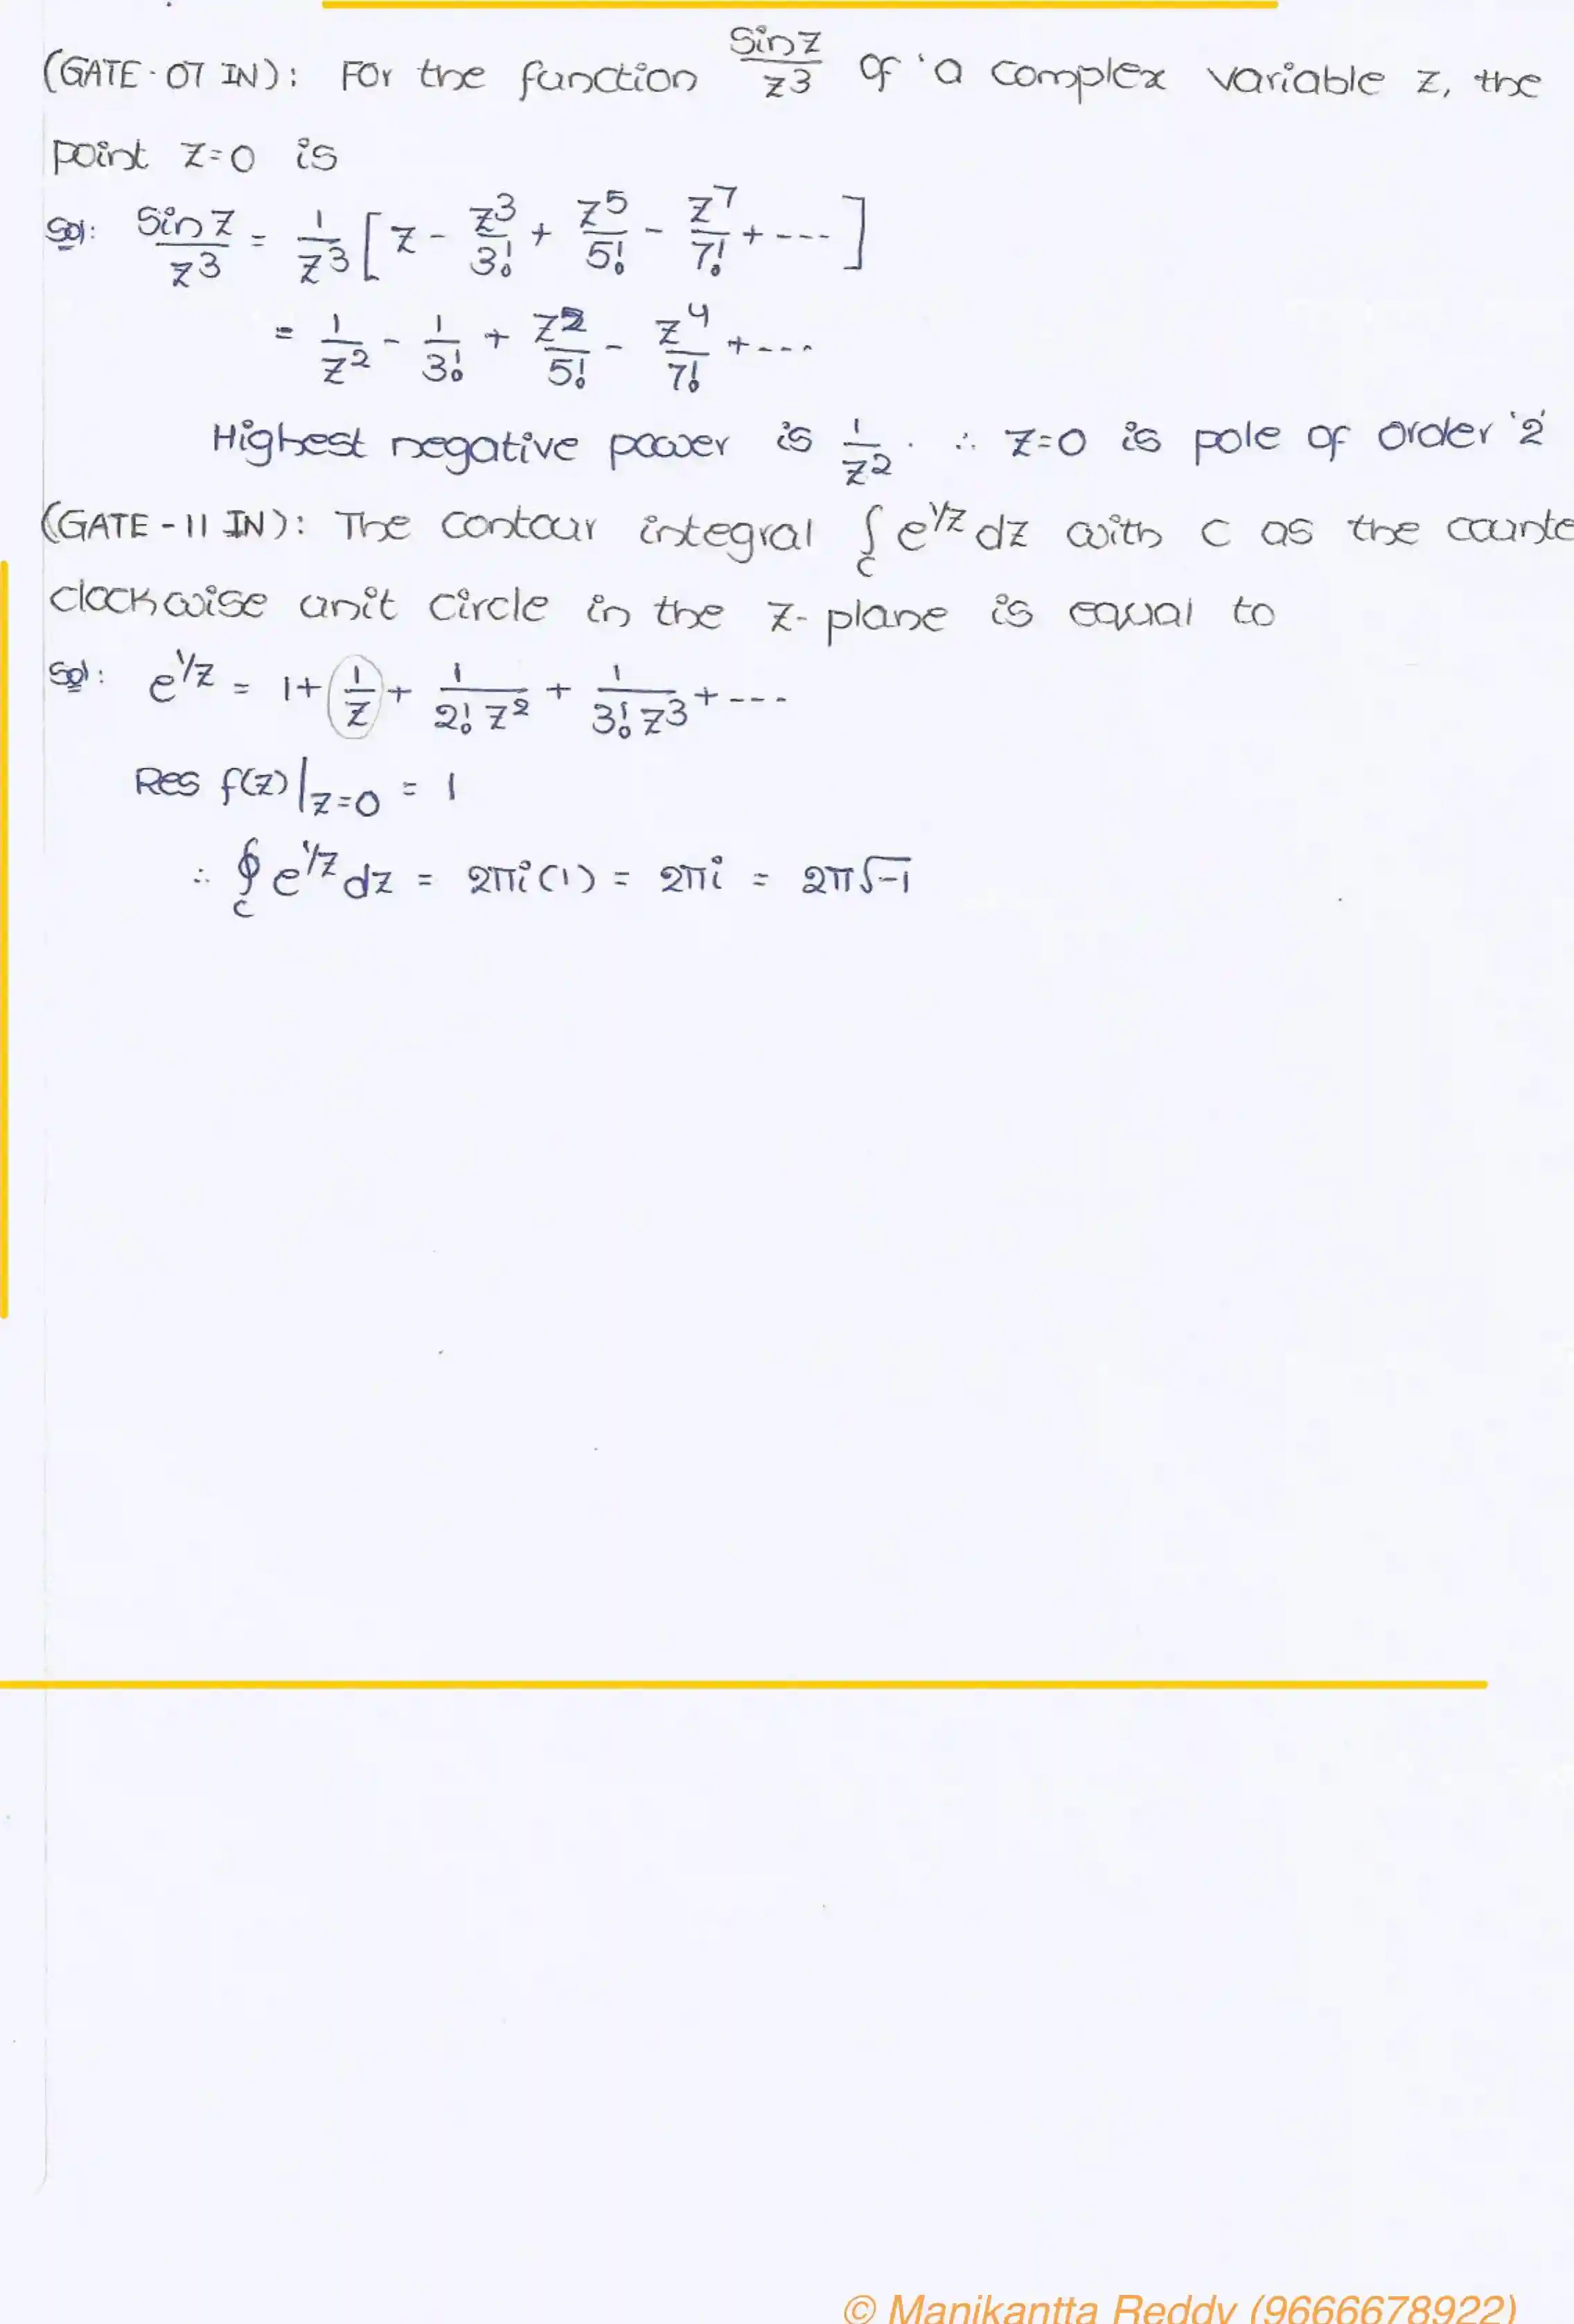 (GATE-07 IN): For the function sinz/z³ of a complex variable z, the
point z=0 is
Sol: sinz/z³ = 1/z³ [z - z³/3! + z⁵/5! - z⁷/7! + ---- ]
= 1/z² - 1/3! + z²/5! - z⁴/7! + ----
Highest negative power is 1/z². ∴ z=0 is pole of order '2'
(GATE-11 IN): The contour integral ∫_C e^{1/z} dz with C as the counte
clockwise unit circle in the z-plane is equal to
Sol: e^{1/z} = 1 + 1/z + 1/(2! z²) + 1/(3! z³) + ----
Res f(z)|_{z=0} = 1
∴ ∮_C e^{1/z} dz = 2πi(1) = 2πi = 2π√-1
© Manikantta Reddy (9666678922)